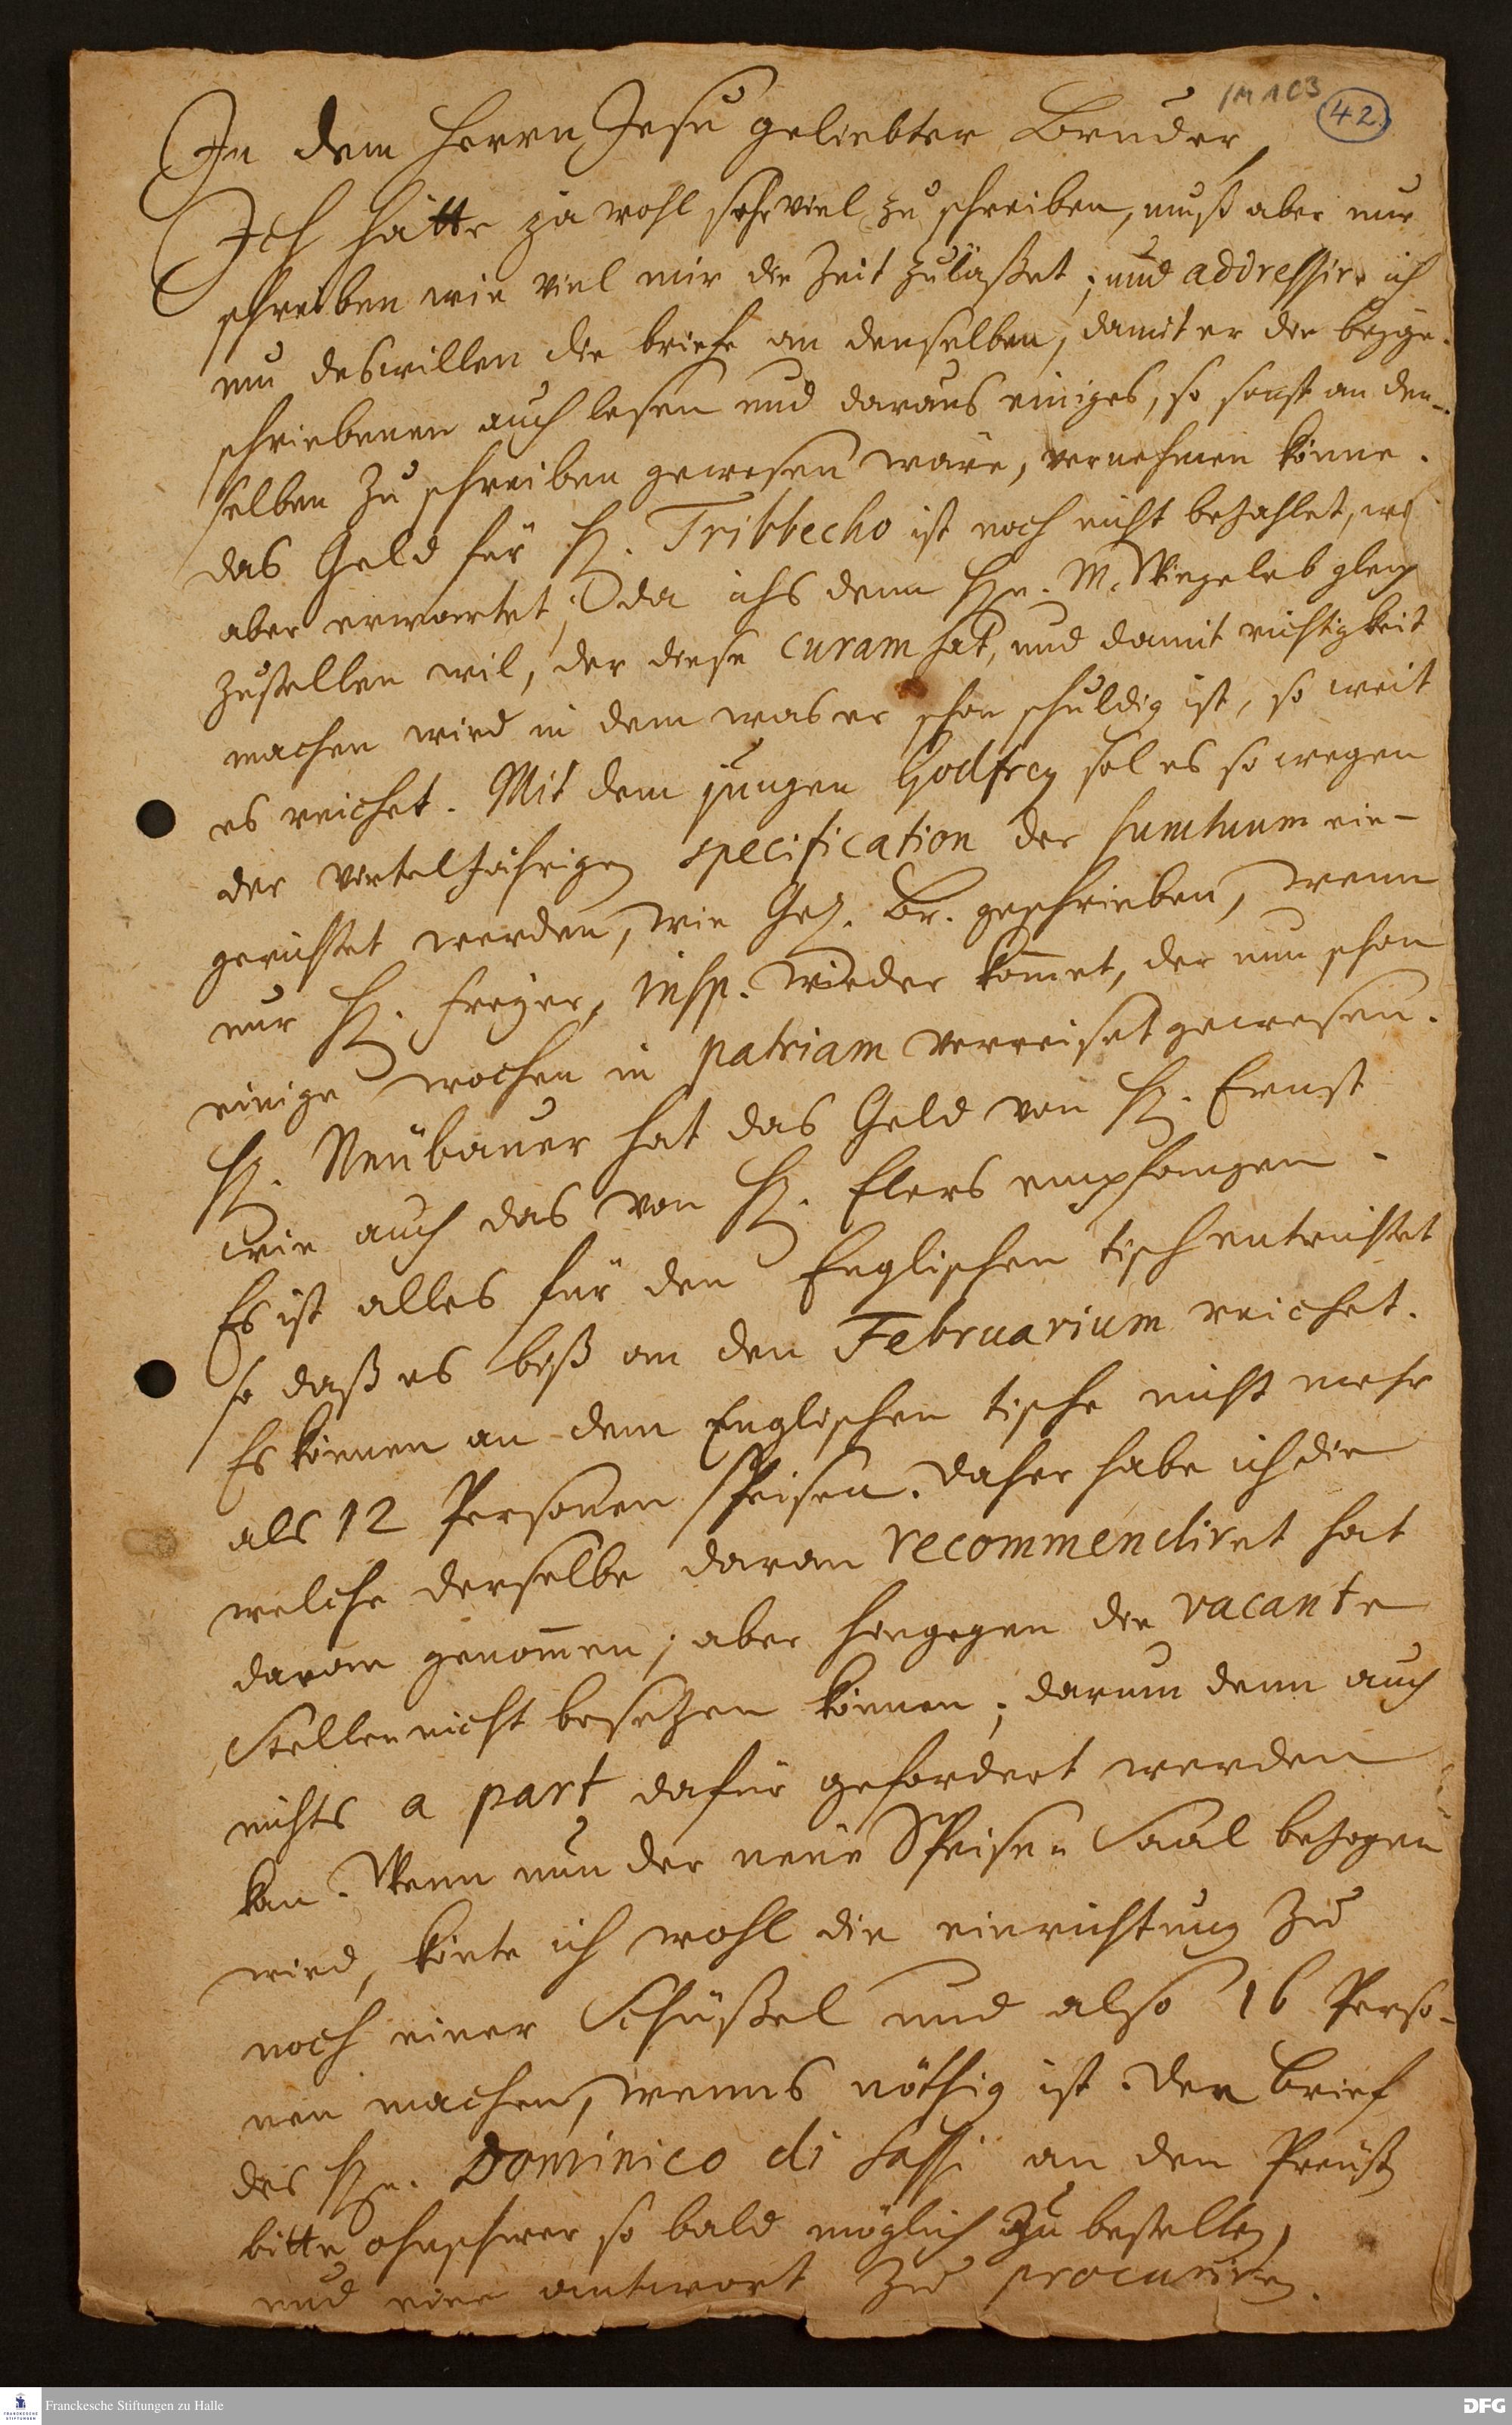 1M1C3
42.
In dem Herrn Jesu geliebter Bruder,
Ich hätte ja wohl sehr viel zu schreiben, muß aber nur
schreiben wie viel mir die Zeit zuläßet; und addressire ich
um deswillen die briefe an denselben, damit er die beyge-
schriebenen auch lesen und daraus einiges, so sonst an den-
selben zu schreiben gewesen wäre, vernehmen könne.
das Geld für H. Tribbecho ist noch nicht bezahlet, wird
aber erwartet; da ichs denn Hn. M. Wiegeleb gleich
zustellen wil, der diese curam hat, und damit richtigkeit
machen wird in dem was er schon schuldig ist, so weit
es reichet. Mit dem jungen Godfrey sol es so wegen
der vierteljährigen specification der sumtuum ein-
gerichtet werden, wie Gel. Br. geschrieben, wenn
nur H. Freyer, insp. wieder kom̄et, der nun schon
einige wochen in patriam verreiset gewesen.
H. Neubauer hat das Geld von H. Ernst
wie auch das von H. Elers empfangen.
Es ist alles für den Englischen tisch entrichtet
so daß es biß an den Februarium reichet.
Es können an dem Englischen tische nicht mehr
als 12 Personen speisen. daher habe ich die
welche derselbe daran recommendiret hat
daran genom̄en; aber hingegen die vacante
Stellen nicht besetzen können; darum denn auch
nichts a part dafür gefordert werden
kan. Wenn nun der neue Speise-Saal bezogen
wird, könte ich wohl die einrichtung zu
noch einer Schüßel und also 16 Perso-
nen machen, wenns nöthig ist. Den brief
des Hn. Dominico di Sassi an den
bitte ohnschwer so bald möglich zu bestellen,
und eine antwort zu procuriren.
Franckesche Stiftungen zu Halle
DFG